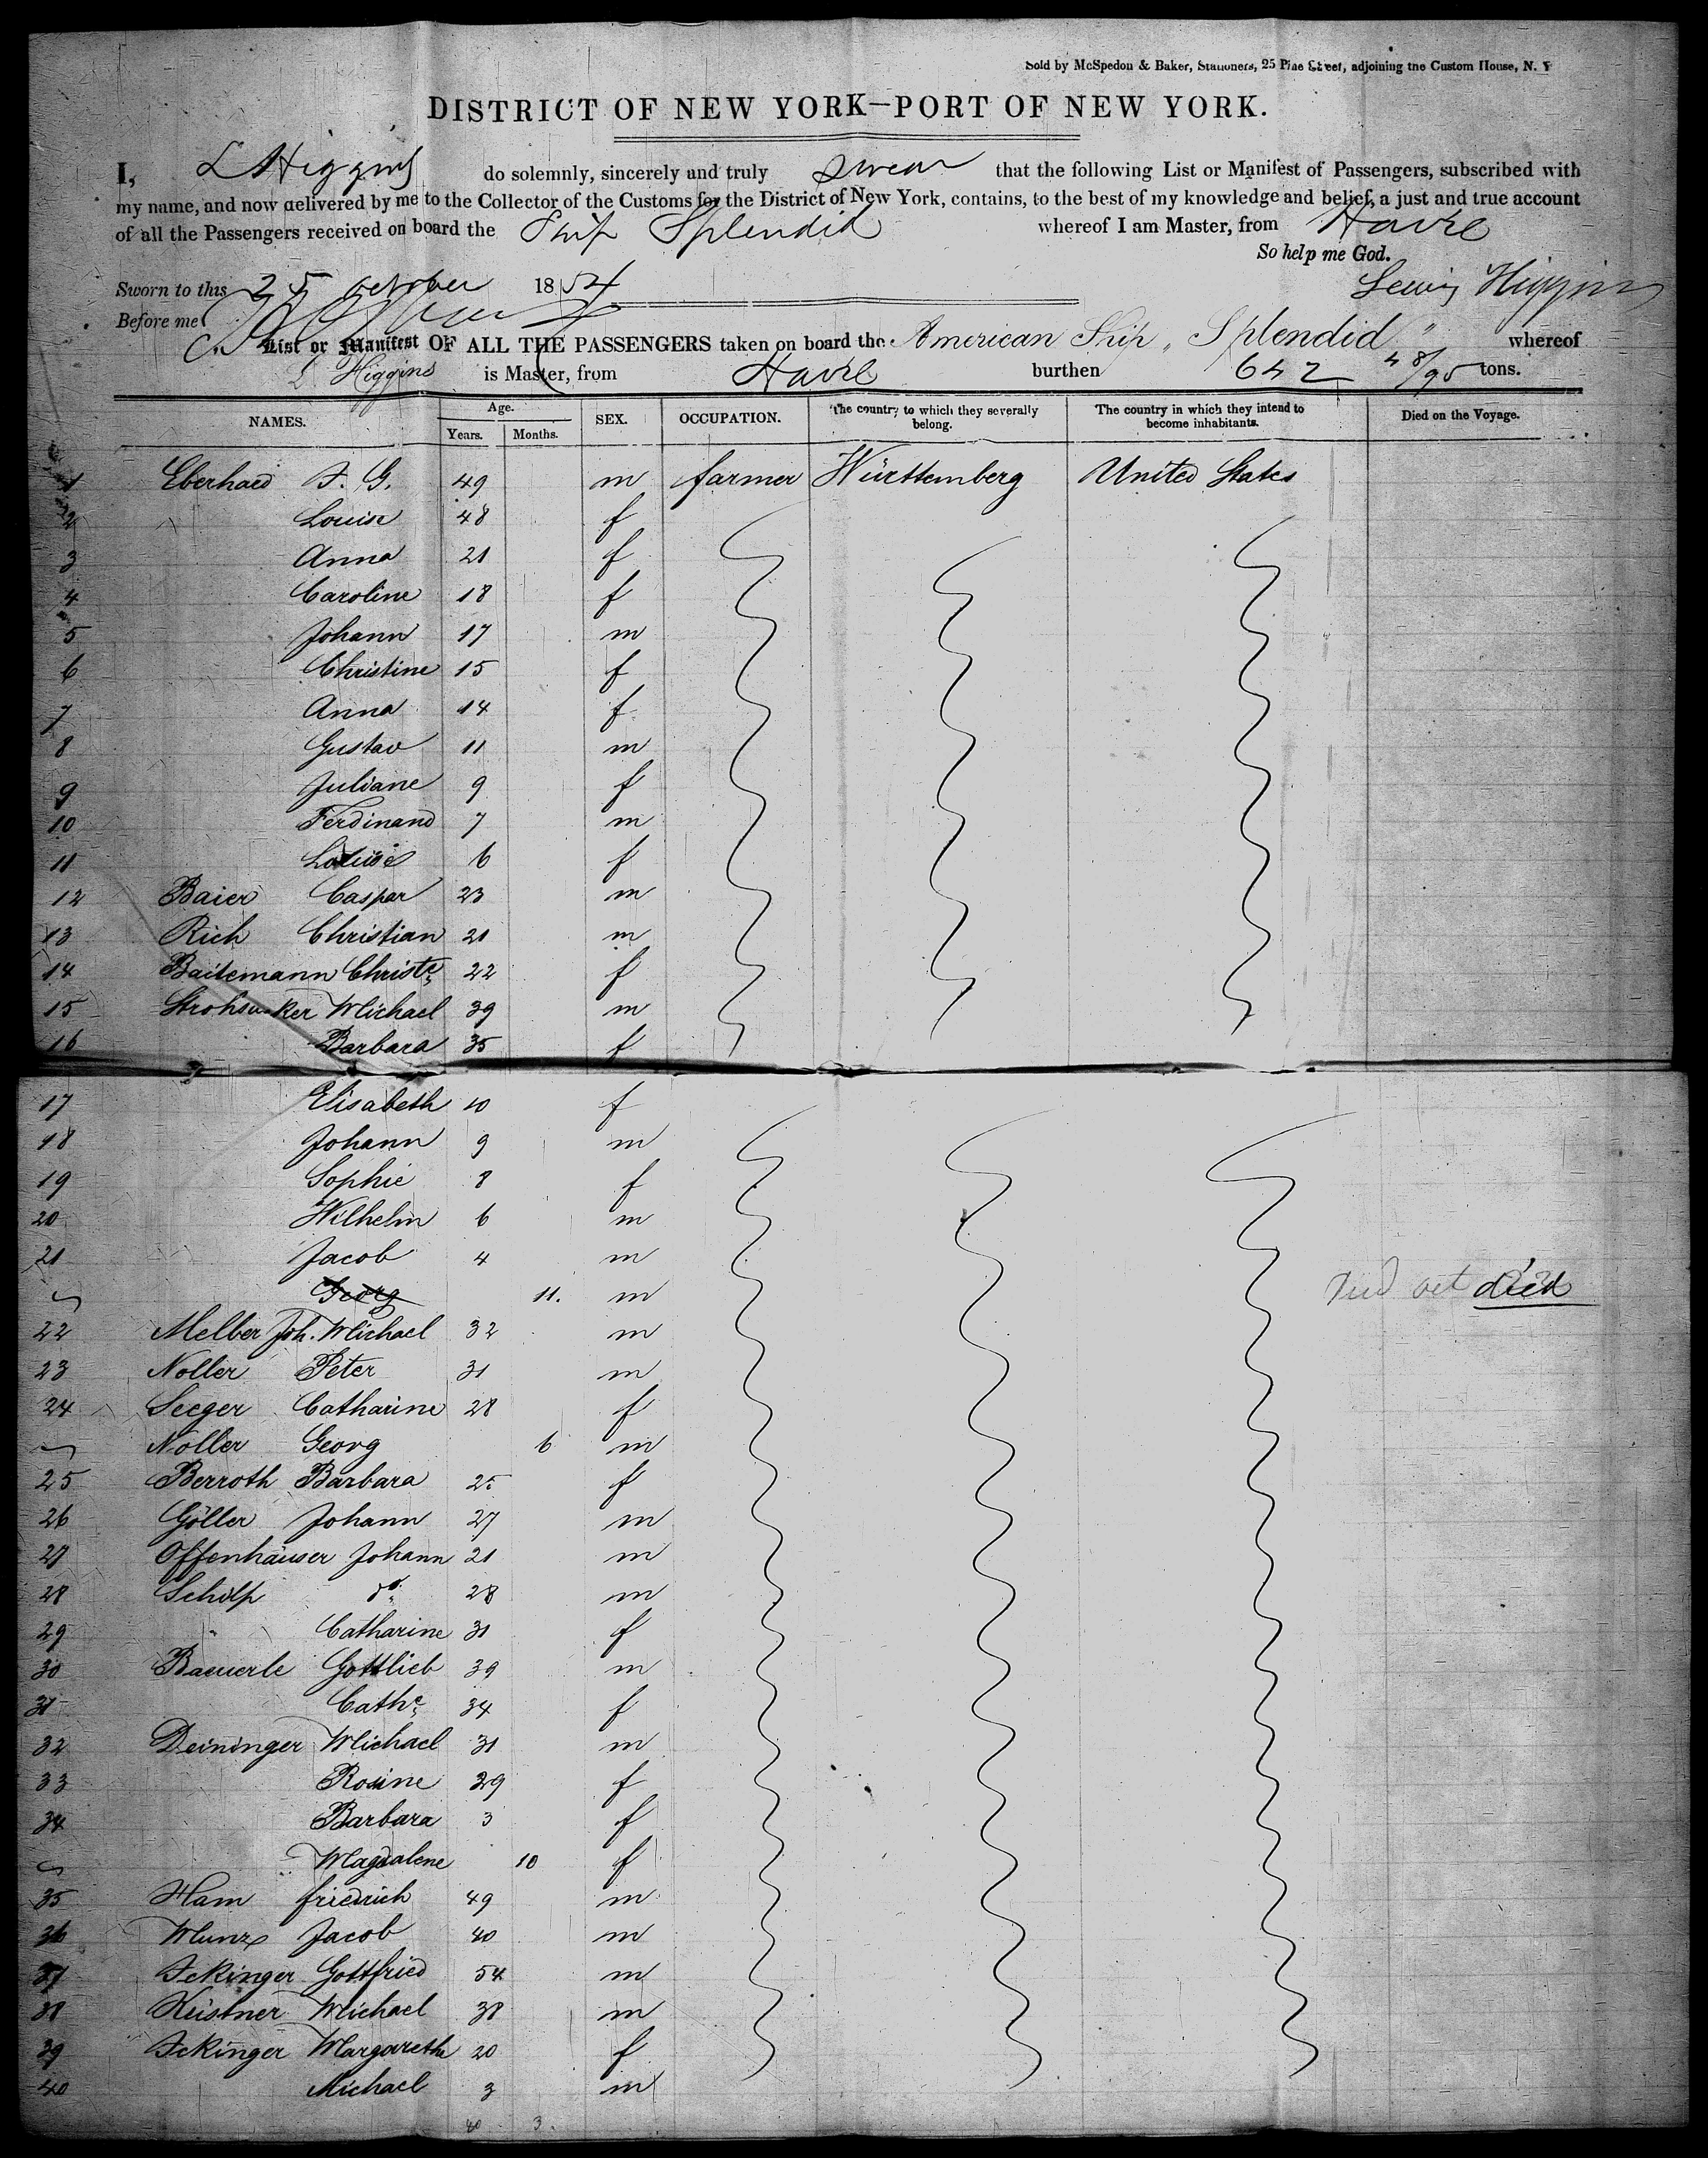 Sold by McSpedon & Baker, Stationers, 25 Pine Street, adjoining the Custom House, N. Y
DISTRICT OF NEW YORK—PORT OF NEW YORK.
I, L Higgins do solemnly, sincerely and truly swear that the following List or Manifest of Passengers, subscribed with
my name, and now delivered by me to the Collector of the Customs for the District of New York, contains, to the best of my knowledge and belief, a just and true account
of all the Passengers received on board the Ship Splendid whereof I am Master, from Havre
So help me God.
Sworn to this 25 October 1854 Lewis Higgins
Before me
List or Manifest OF ALL THE PASSENGERS taken on board the American Ship "Splendid" whereof
L Higgins is Master, from Havre burthen 642 48/95 tons.
NAMES. Age. Years. Months. SEX. OCCUPATION. The country to which they severally belong. The country in which they intend to become inhabitants. Died on the Voyage.
1 Eberhard J. G. 49 m farmer Württemberg United States
2 Louise 48 f
3 Anna 21 f
4 Caroline 18 f
5 Johann 17 m
6 Christine 15 f
7 Anna 14 f
8 Gustav 11 m
9 Juliane 9 f
10 Ferdinand 7 m
11 Louise 6 f
12 Baier Caspar 23 m
13 Rich Christian 21 m
14 Baitemann Christe 22 f
15 Michael 39 m
16 Barbara 35 f
17 Elisabeth 10 f
18 Johann 9 m
19 Sophie 8 f
20 Wilhelm 6 m
21 Jacob 4 m
Georg 11. m died
22 Melber Joh. Michael 32 m
23 Noller Peter 31 m
24 Seeger Catharine 28 f
Noller Georg 6 m
25 Berroth Barbara 25 f
26 Göller Johann 27 m
27 Offenhäuser Johann 21 m
28 Schilp do 28 m
29 " Catharine 31 f
30 Bauerle Gottlieb 39 m
31 Cathe 34 f
32 Deininger Michael 31 m
33 Rosine 29 f
34 Barbara 3 f
Magdalene 10 f
35 Ham friedrich 49 m
36 Munz Jacob 40 m
37 Ickinger Gottfried 54 m
38 Kistner Michael 38 m
39 Ickinger Margarethe 20 f
40 Michael 3 m
40 3.